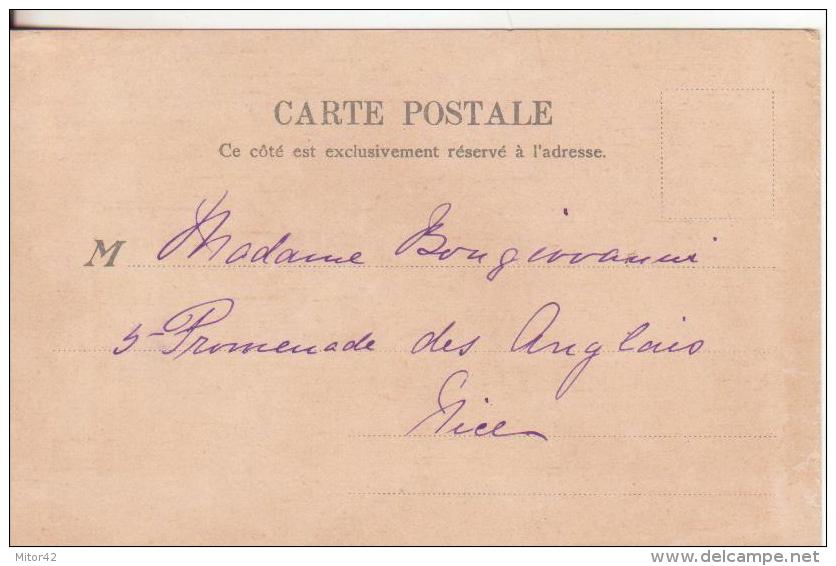 CARTE POSTALE
Ce côté est exclusivement réservé à l'adresse.
M Madame Bongiovanni
5 - Promenade des Anglais
Nice
Mitor42
delcampe.net